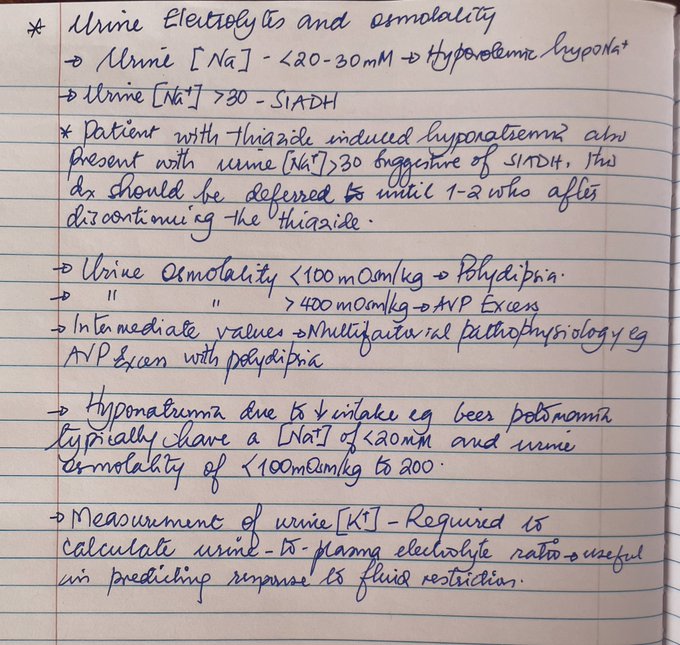 * Urine Electrolytes and osmolality
→ Urine [Na] - <20-30mM → Hypovolemic hypoNa+
→ Urine [Na+] >30 - SIADH
* Patient with thiazide induced hyponatremia also
present with urine [Na+]>30 suggestive of SIADH, this
dx should be deferred to until 1-2 wks after
discontinuing the thiazide.
→ Urine Osmolality <100mOsm/kg → Polydipsia.
→ " " >400mOsm/kg → AVP Excess
→ Intermediate values → Multifactorial pathophysiology eg
AVP Excess with polydipsia
→ Hyponatremia due to ↓ intake eg beer potomania
typically have a [Na+] of <20mM and urine
osmolality of <100mOsm/kg to 200.
→ Measurement of urine [K+] - Required to
calculate urine-to-plasma electrolyte ratio → useful
in predicting response to fluid restriction.